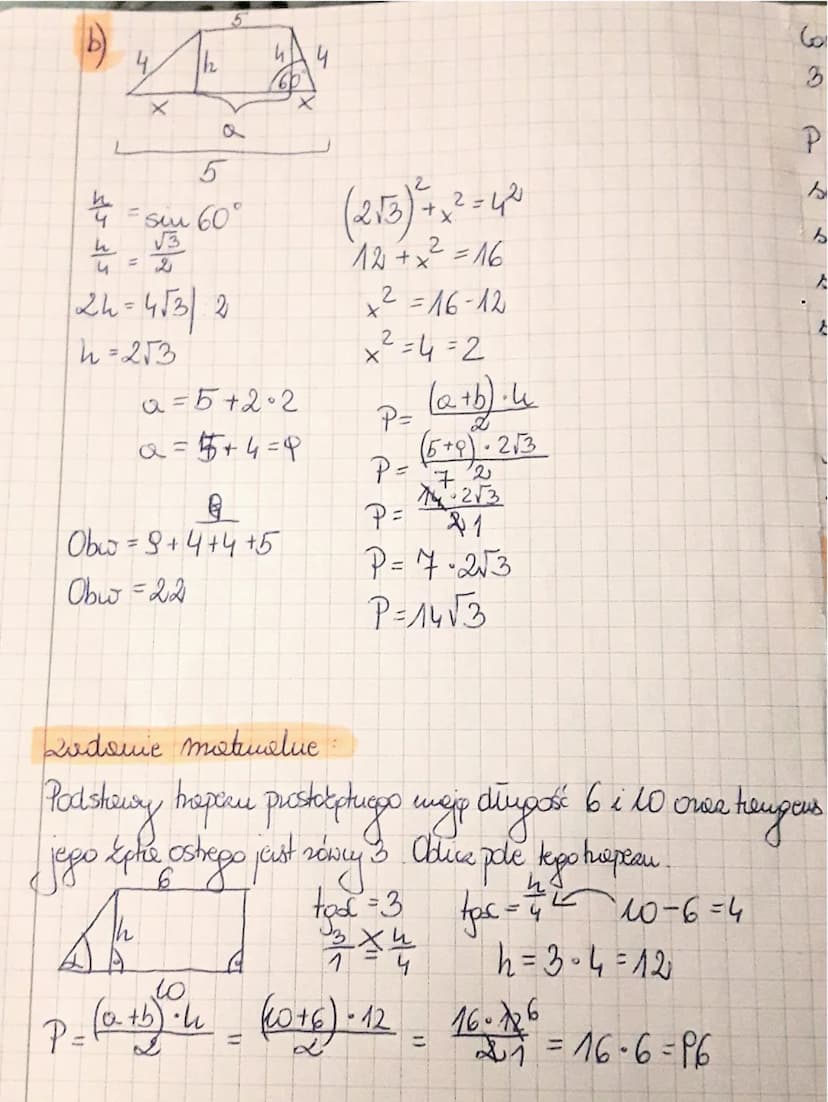 b)
5
4 h 4 4
60°
x x
a
5
h/4 = sin 60°
h/4 = √3/2
2h = 4√3 | 2
h = 2√3
(2√3)² + x² = 4²
12 + x² = 16
x² = 16 - 12
x² = 4 = 2
a = 5 + 2 · 2
a = 5 + 4 = 9
Obw = 9 + 4 + 4 + 5
Obw = 22
P = (a + b) · h / 2
P = (5 + 9) · 2√3 / 2
7
P = 14 · 2√3 / 2 1
P = 7 · 2√3
P = 14√3
zadanie maturalne :
Podstawy trapezu prostokątnego mają długość 6 i 10 oraz tangens
jego kąta ostrego jest równy 3. Oblicz pole tego trapezu.
6
h
α
10
tgα = 3
3/1 = h/4
tgα = h/4 10 - 6 = 4
h = 3 · 4 = 12
P = (a + b) · h / 2 = (10 + 6) · 12 / 2 = 16 · 12 6 / 2 1 = 16 · 6 = 96
Co
3
P
s
s
s
s